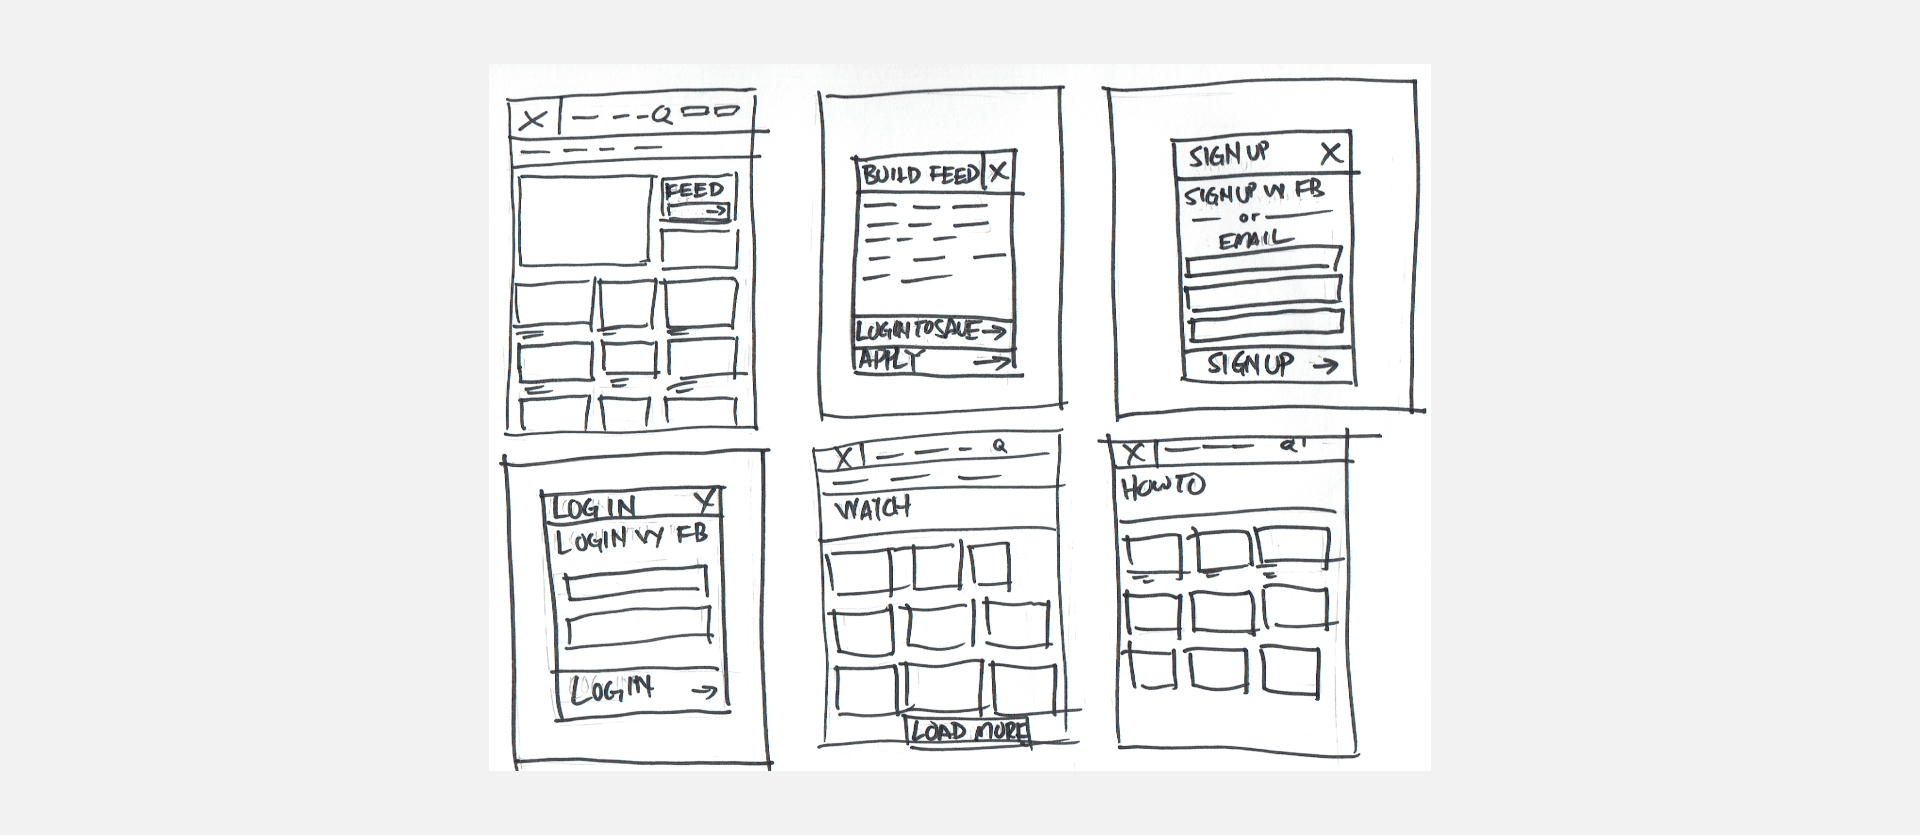 X
Q
FEED
BUILD FEED X
LOGIN TO SAVE →
APPLY →
SIGN UP X
SIGN UP W/ FB
or
EMAIL
SIGN UP →
LOG IN X
LOGIN W/ FB
LOG IN →
X Q
WATCH
LOAD MORE
X Q
HOW TO